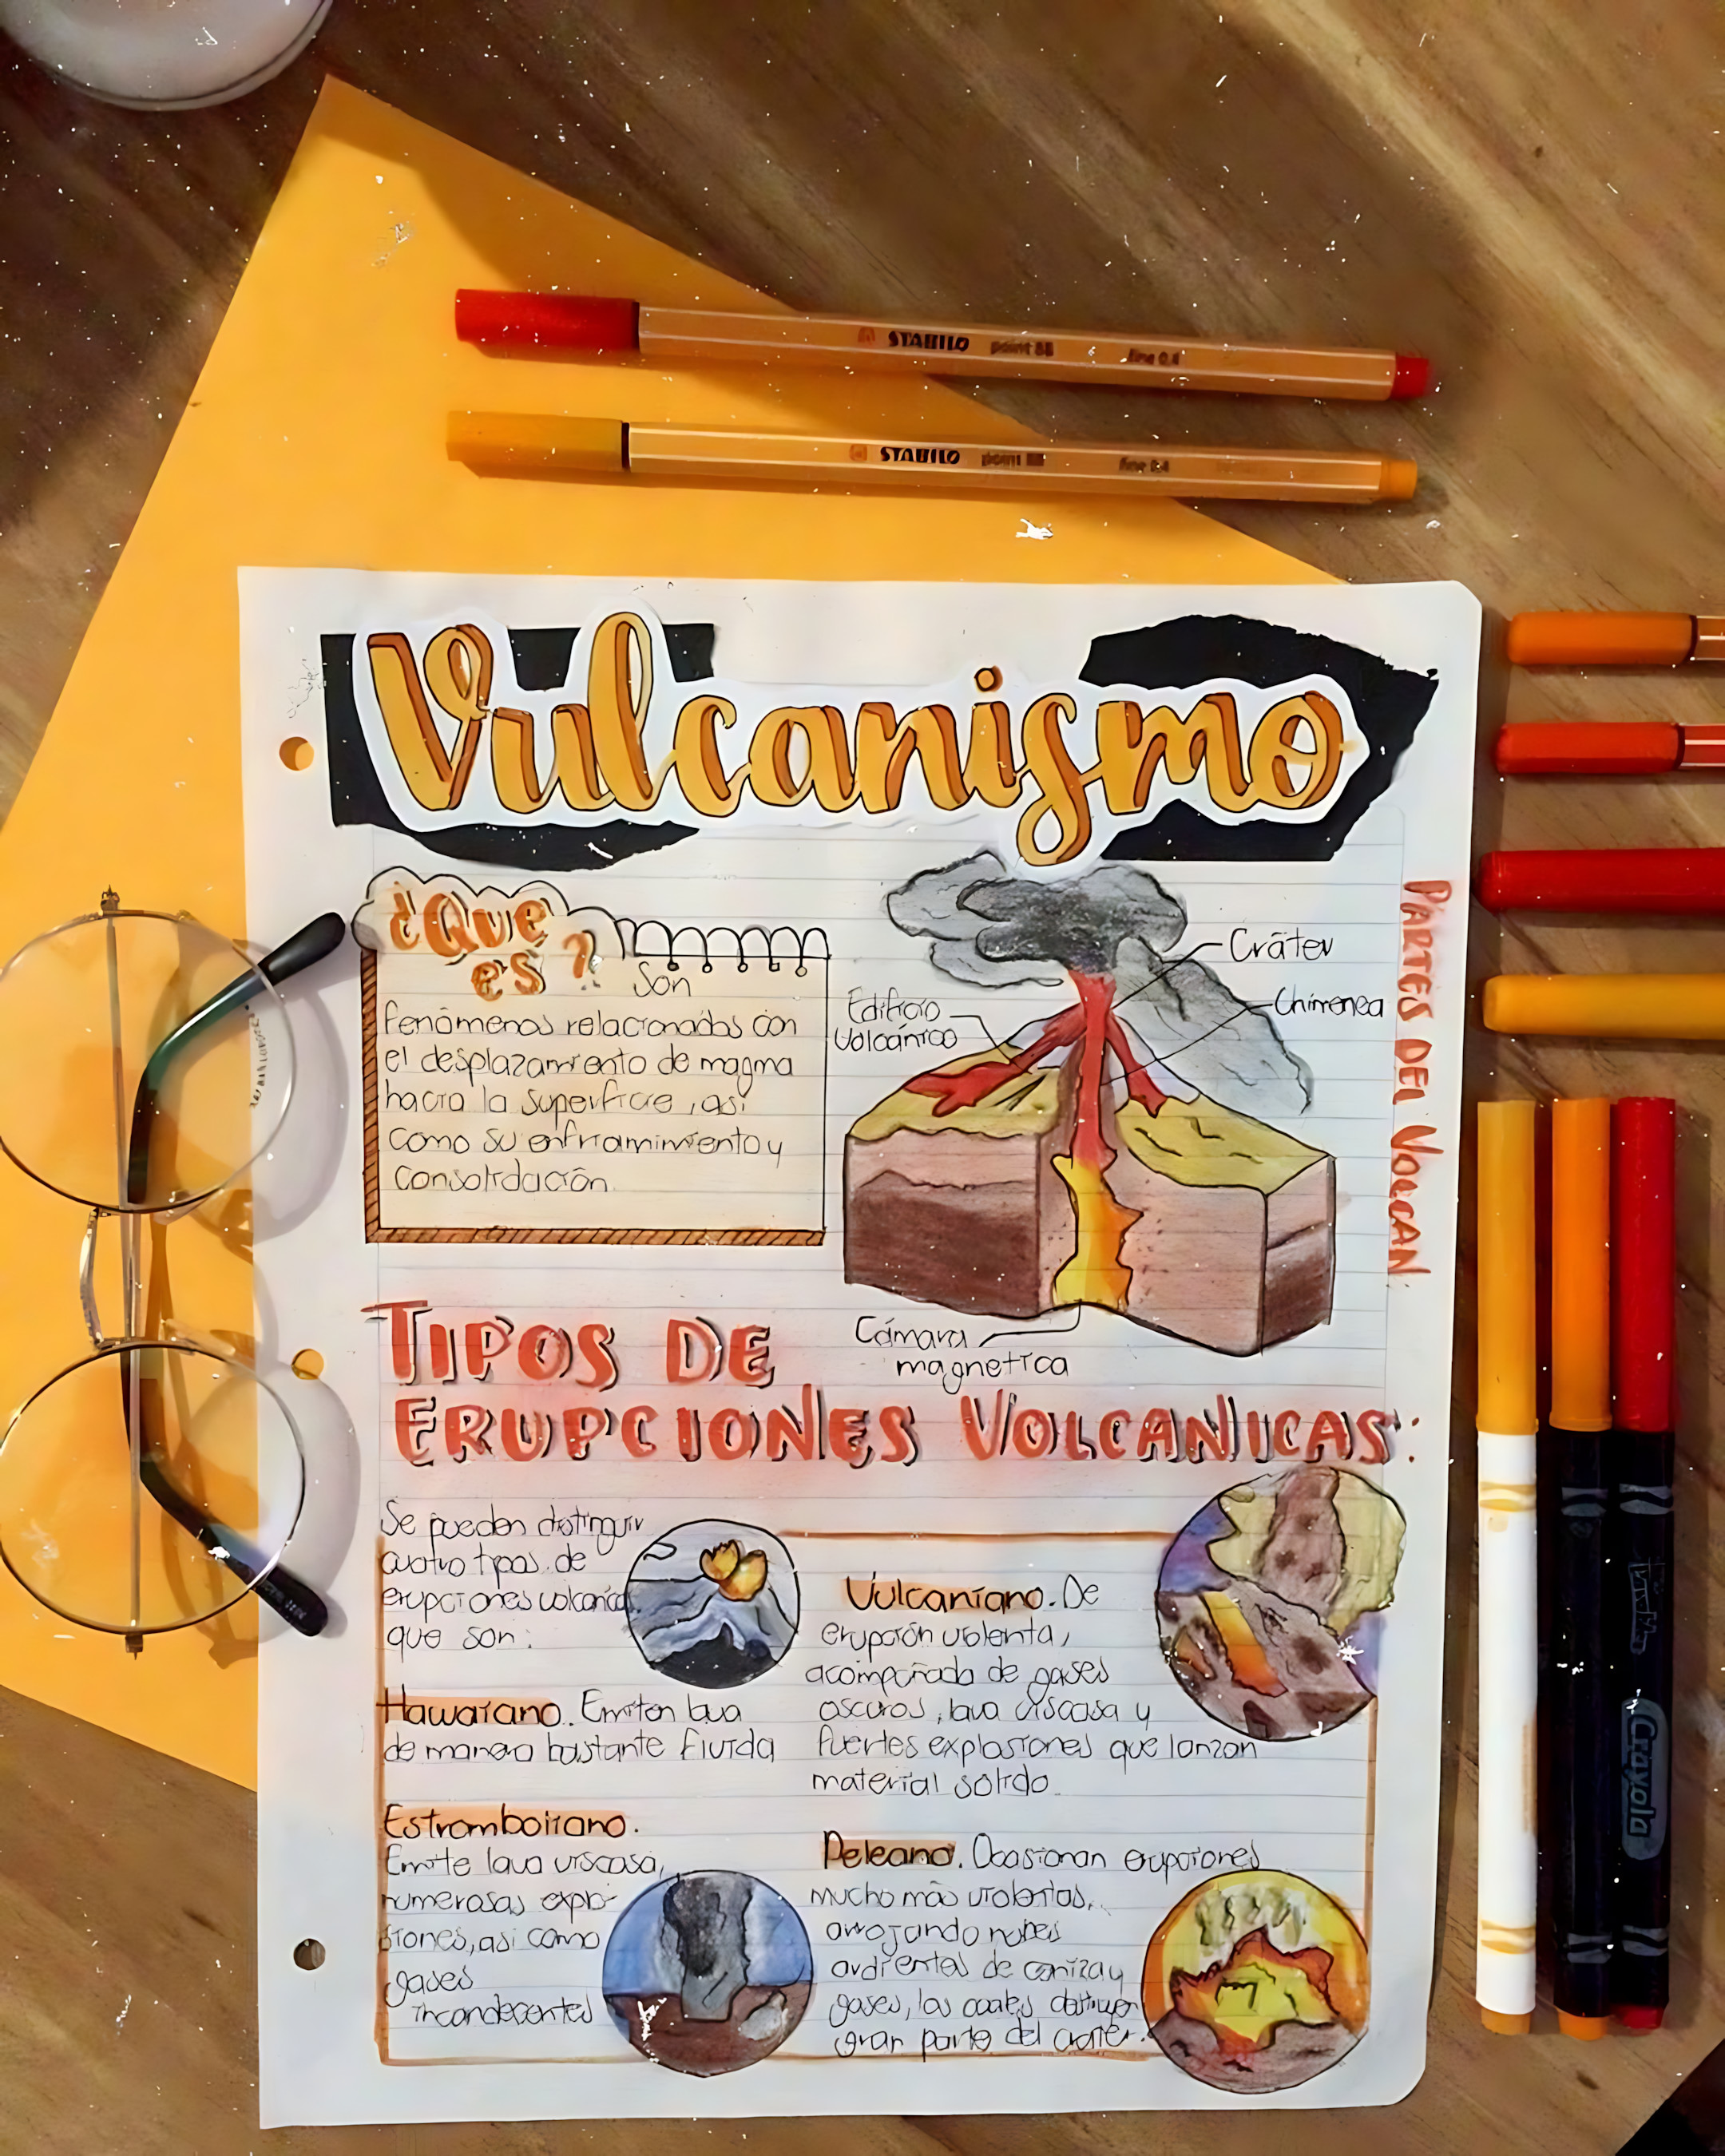 STABILO point 88 fine 0.4
STABILO point 88 fine 0.4
Vulcanismo
¿Que
es?
Son
fenómenos relacionados con
el desplazamiento de magma
hacia la superficie, así
como su enfriamimiento y
consolidación.
Cráter
Chimenea
Edificio
Volcánico
Cámara
magnetica
PARTES DEL VOLCAN
TIPOS DE
ERUPCIONES VOLCANICAS:
Se pueden distinguir
cuatro tipos de
erupciones volcánica
que son:
Hawaiano. Emiten lava
de manera bastante fluida
Estromboliano.
Emite lava viscasa,
numerosas explo-
siones, así como
gases
incandecentes
Vulcaniano. De
erupción violenta,
acompañada de gases
oscuros, lava viscasa y
fuertes explosiones que lanzan
material sólido.
Peleano. Ocasionan erupciones
mucho más violentas,
arrojando nubes
ardientes de ceniza y
gases, las cuales destruyen
gran parte del cráter.
Crayola